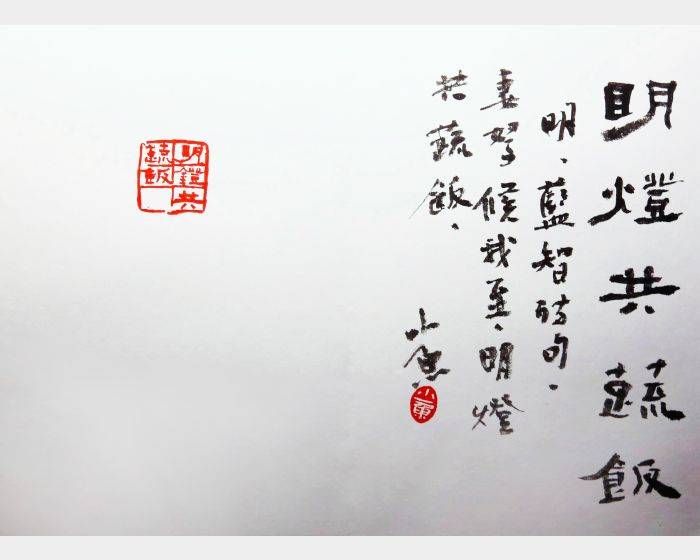 明燈共蔬飯
明、藍智詩句。
妻孥候我至、明燈
共蔬飯、
小魚
明鐙共
蔬飯